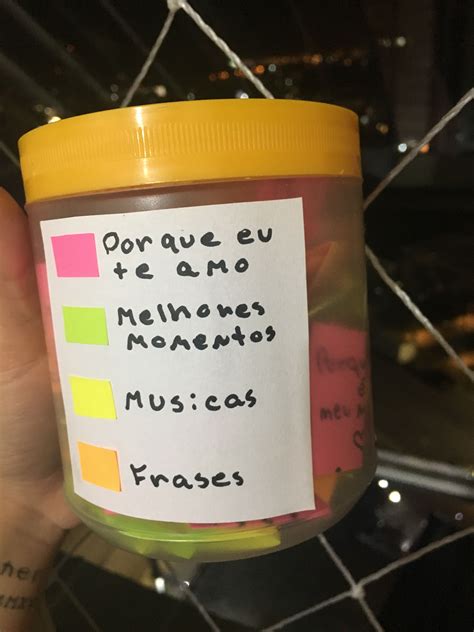 Por que eu
te amo
Melhores
momentos
Musicas
Frases
Porqu
meu